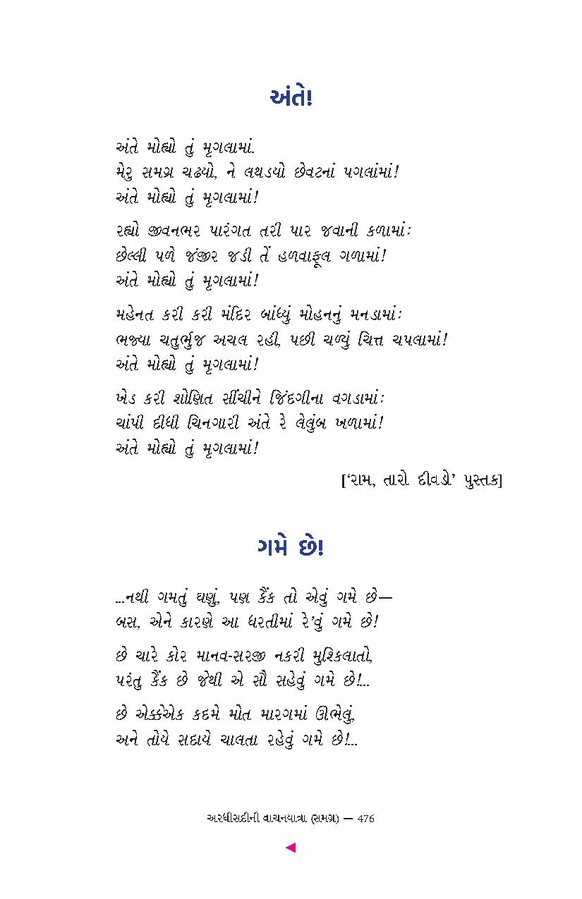 અંતે!
અંતે મોહ્યો તું મૃગલામાં.
મેરુ સમગ્ર ચઢ્યો, ને લથડ્યો છેવટનાં પગલાંમાં!
અંતે મોહ્યો તું મૃગલામાં!
રહ્યો જીવનભર પારંગત તરી પાર જવાની કળામાં:
છેલ્લી પળે જંજીર જડી તેં હળવાફૂલ ગળામાં!
અંતે મોહ્યો તું મૃગલામાં!
મહેનત કરી કરી મંદિર બાંધ્યું મોહનનું મનડામાં:
ભજ્યા ચતુર્ભુજ અચલ રહી, પછી ચળ્યું ચિત્ત ચપલામાં!
અંતે મોહ્યો તું મૃગલામાં!
ખેડ કરી શોણિત સીંચીને જિંદગીના વગડામાં:
ચાંપી દીધી ચિનગારી અંતે રે લેલુંબ ખળામાં!
અંતે મોહ્યો તું મૃગલામાં!
['રામ, તારો દીવડો' પુસ્તક]
ગમે છે!
...નથી ગમતું ઘણું, પણ કૈંક તો એવું ગમે છે—
બસ, એને કારણે આ ધરતીમાં રે'વું ગમે છે!
છે ચારે કોર માનવ-સરજી નકરી મુશ્કિલાતો,
પરંતુ કૈંક છે જેથી એ સૌ સહેવું ગમે છે!...
છે એક્કેએક કદમે મોત મારગમાં ઊભેલું,
અને તોયે સદાયે ચાલતા રહેવું ગમે છે!...
અરધીસદીની વાચનયાત્રા (સમગ્ર) — 476